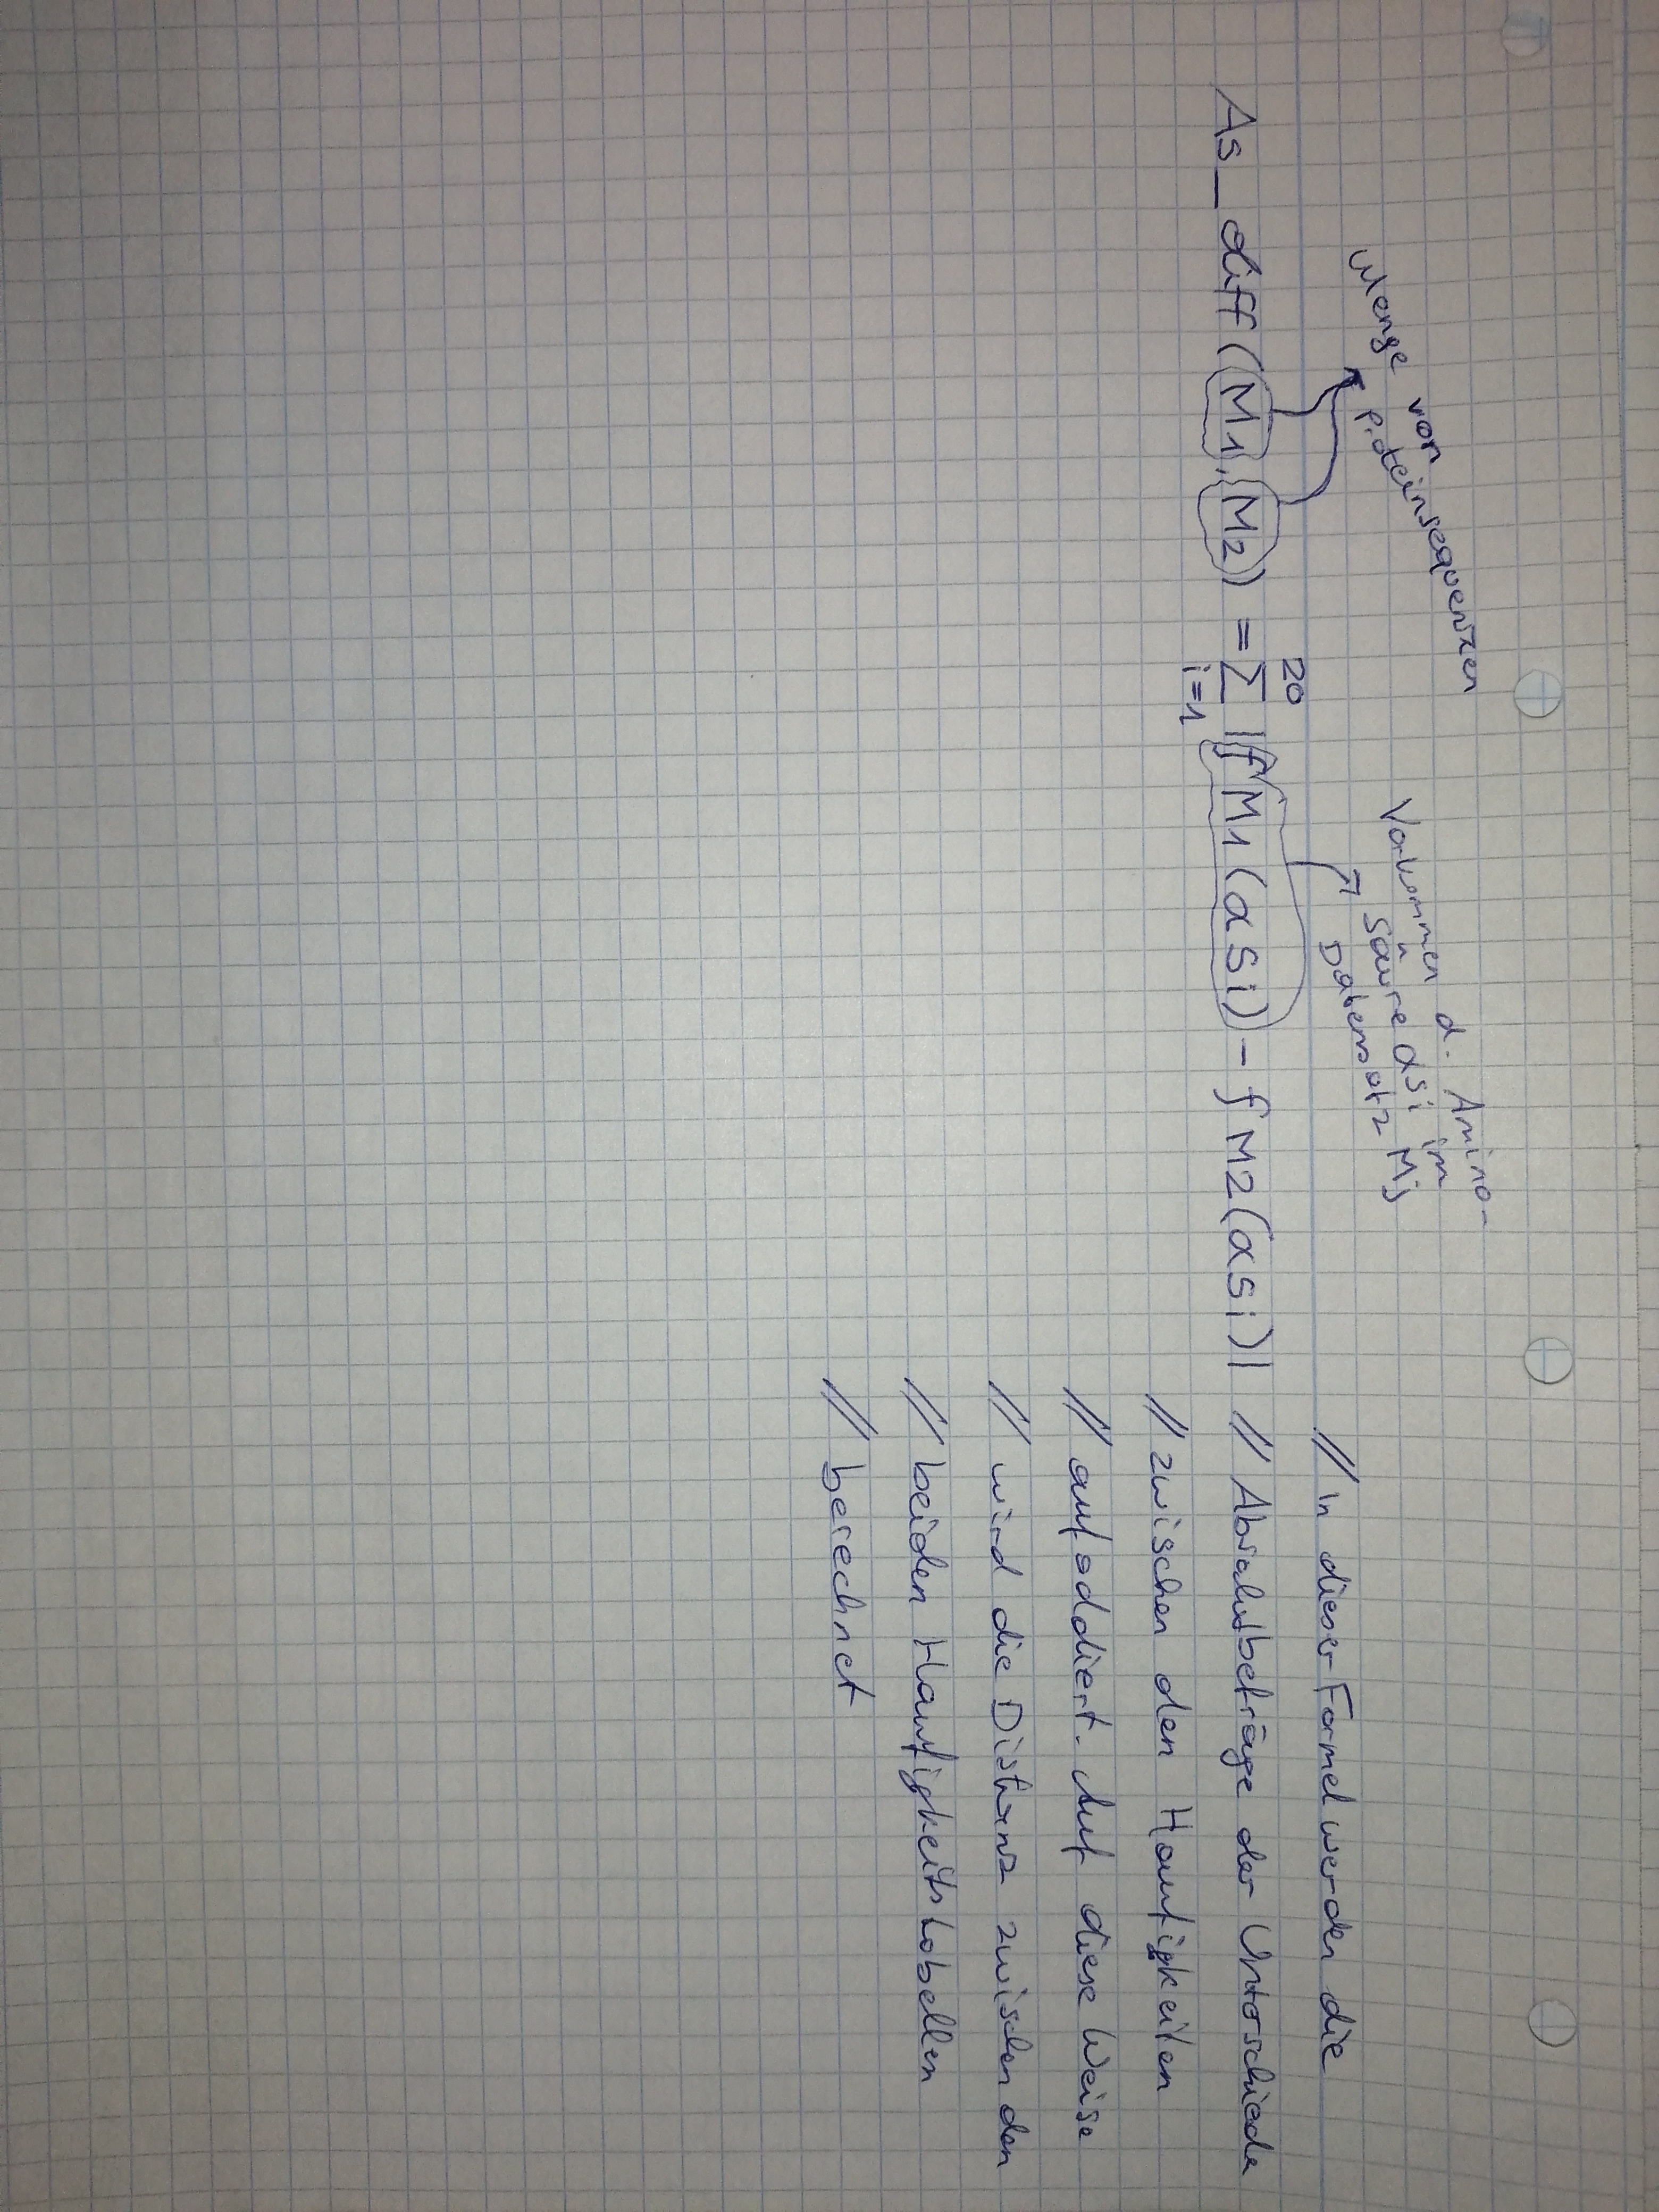 Menge von
Proteinsequenzen
Vorkommen d. Amino-
säure asi im
Datensatz Mj
As_diff(M1,M2) = 20 ∑ i=1 |fM1(asi) - fM2(asi)|
// In dieser Formel werden die
// Absolutbeträge der Unterschiede
// zwischen den Haufigkeiten
// aufaddiert. Auf diese Weise
// wird die Distanz zwischen den
// beiden Haufigkeitstabellen
// berechnet